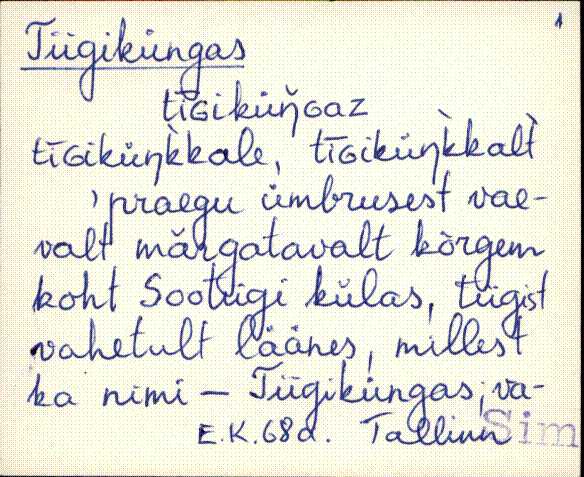 1
Tiigiküngas
tīGiküŋ̆Gaz
tīGiküŋ̀kkale, tīGiküŋ̀kkalt̀
'praegu ümbrusest vae-
valt märgatavalt kõrgem
koht Sootiigi külas, tiigist
vahetult läänes, millest
ka nimi – Tiigiküngas; va-
E.K. 68a. Tallinn Sim